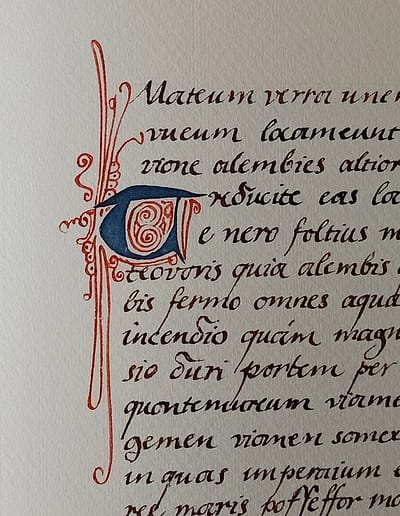 Mateum verra une
vueum locameunt
vione alembies altior
T nducite eas loc
e nero foltius m
teovoris quia alembis
bis fermo omnes aqua
incendio quam magn
sio duri portem per
quontemureum viame
gemen viamen somex
in quas imperaium e
res maris poſſeſſor ma